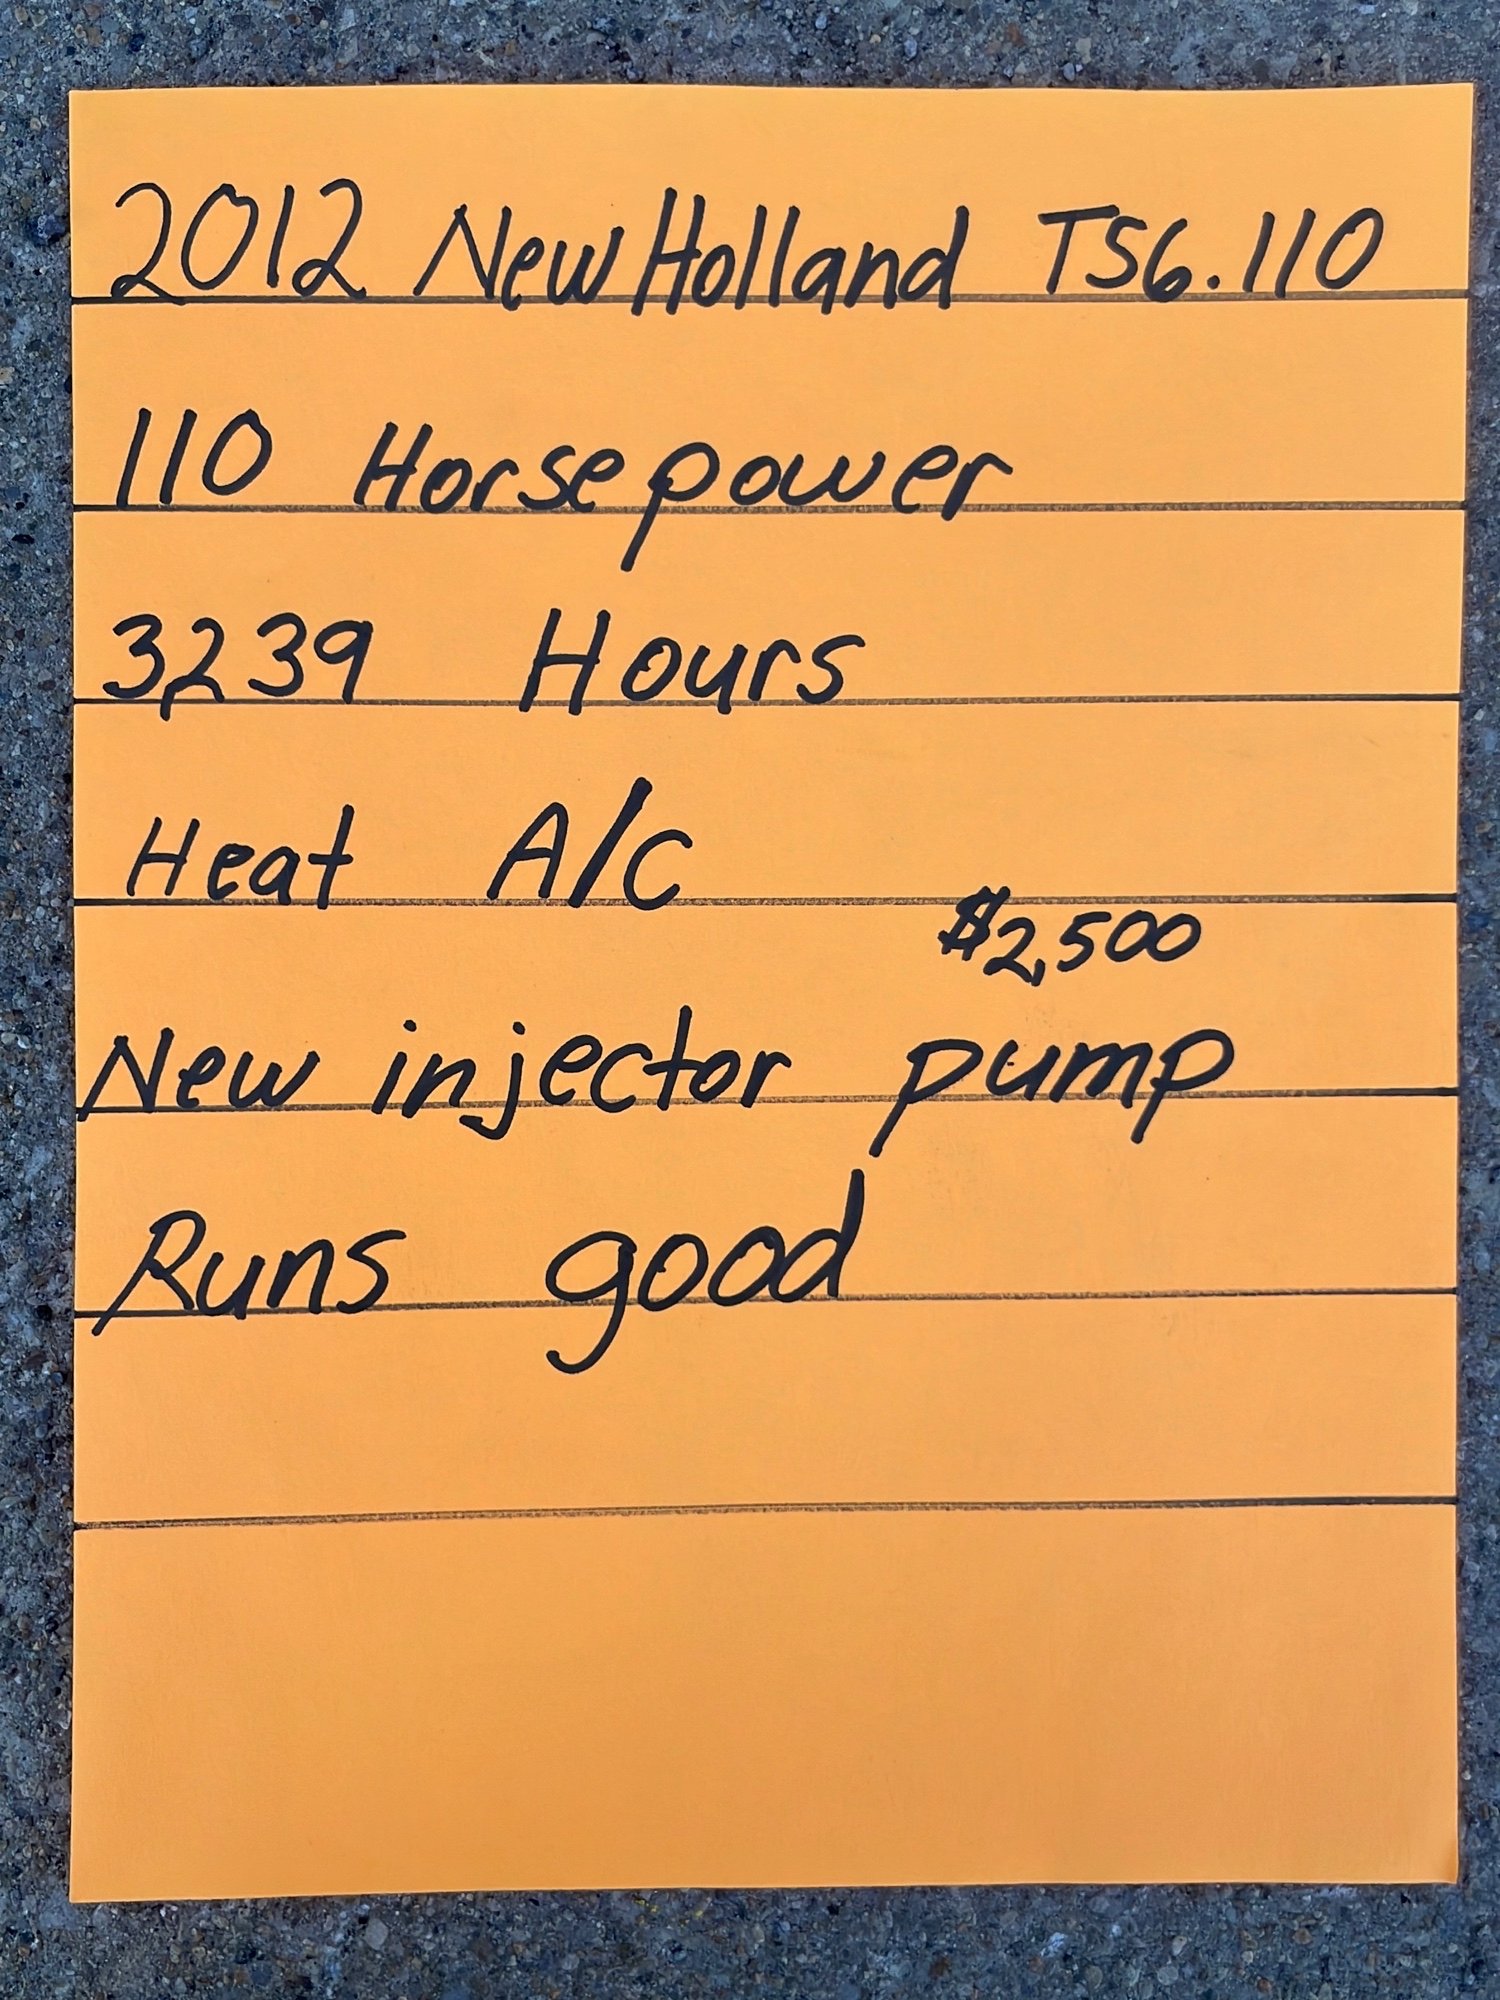 2012 New Holland TS6.110
110 Horsepower
3,239 Hours
Heat A/C
$2,500
New injector pump
Runs good